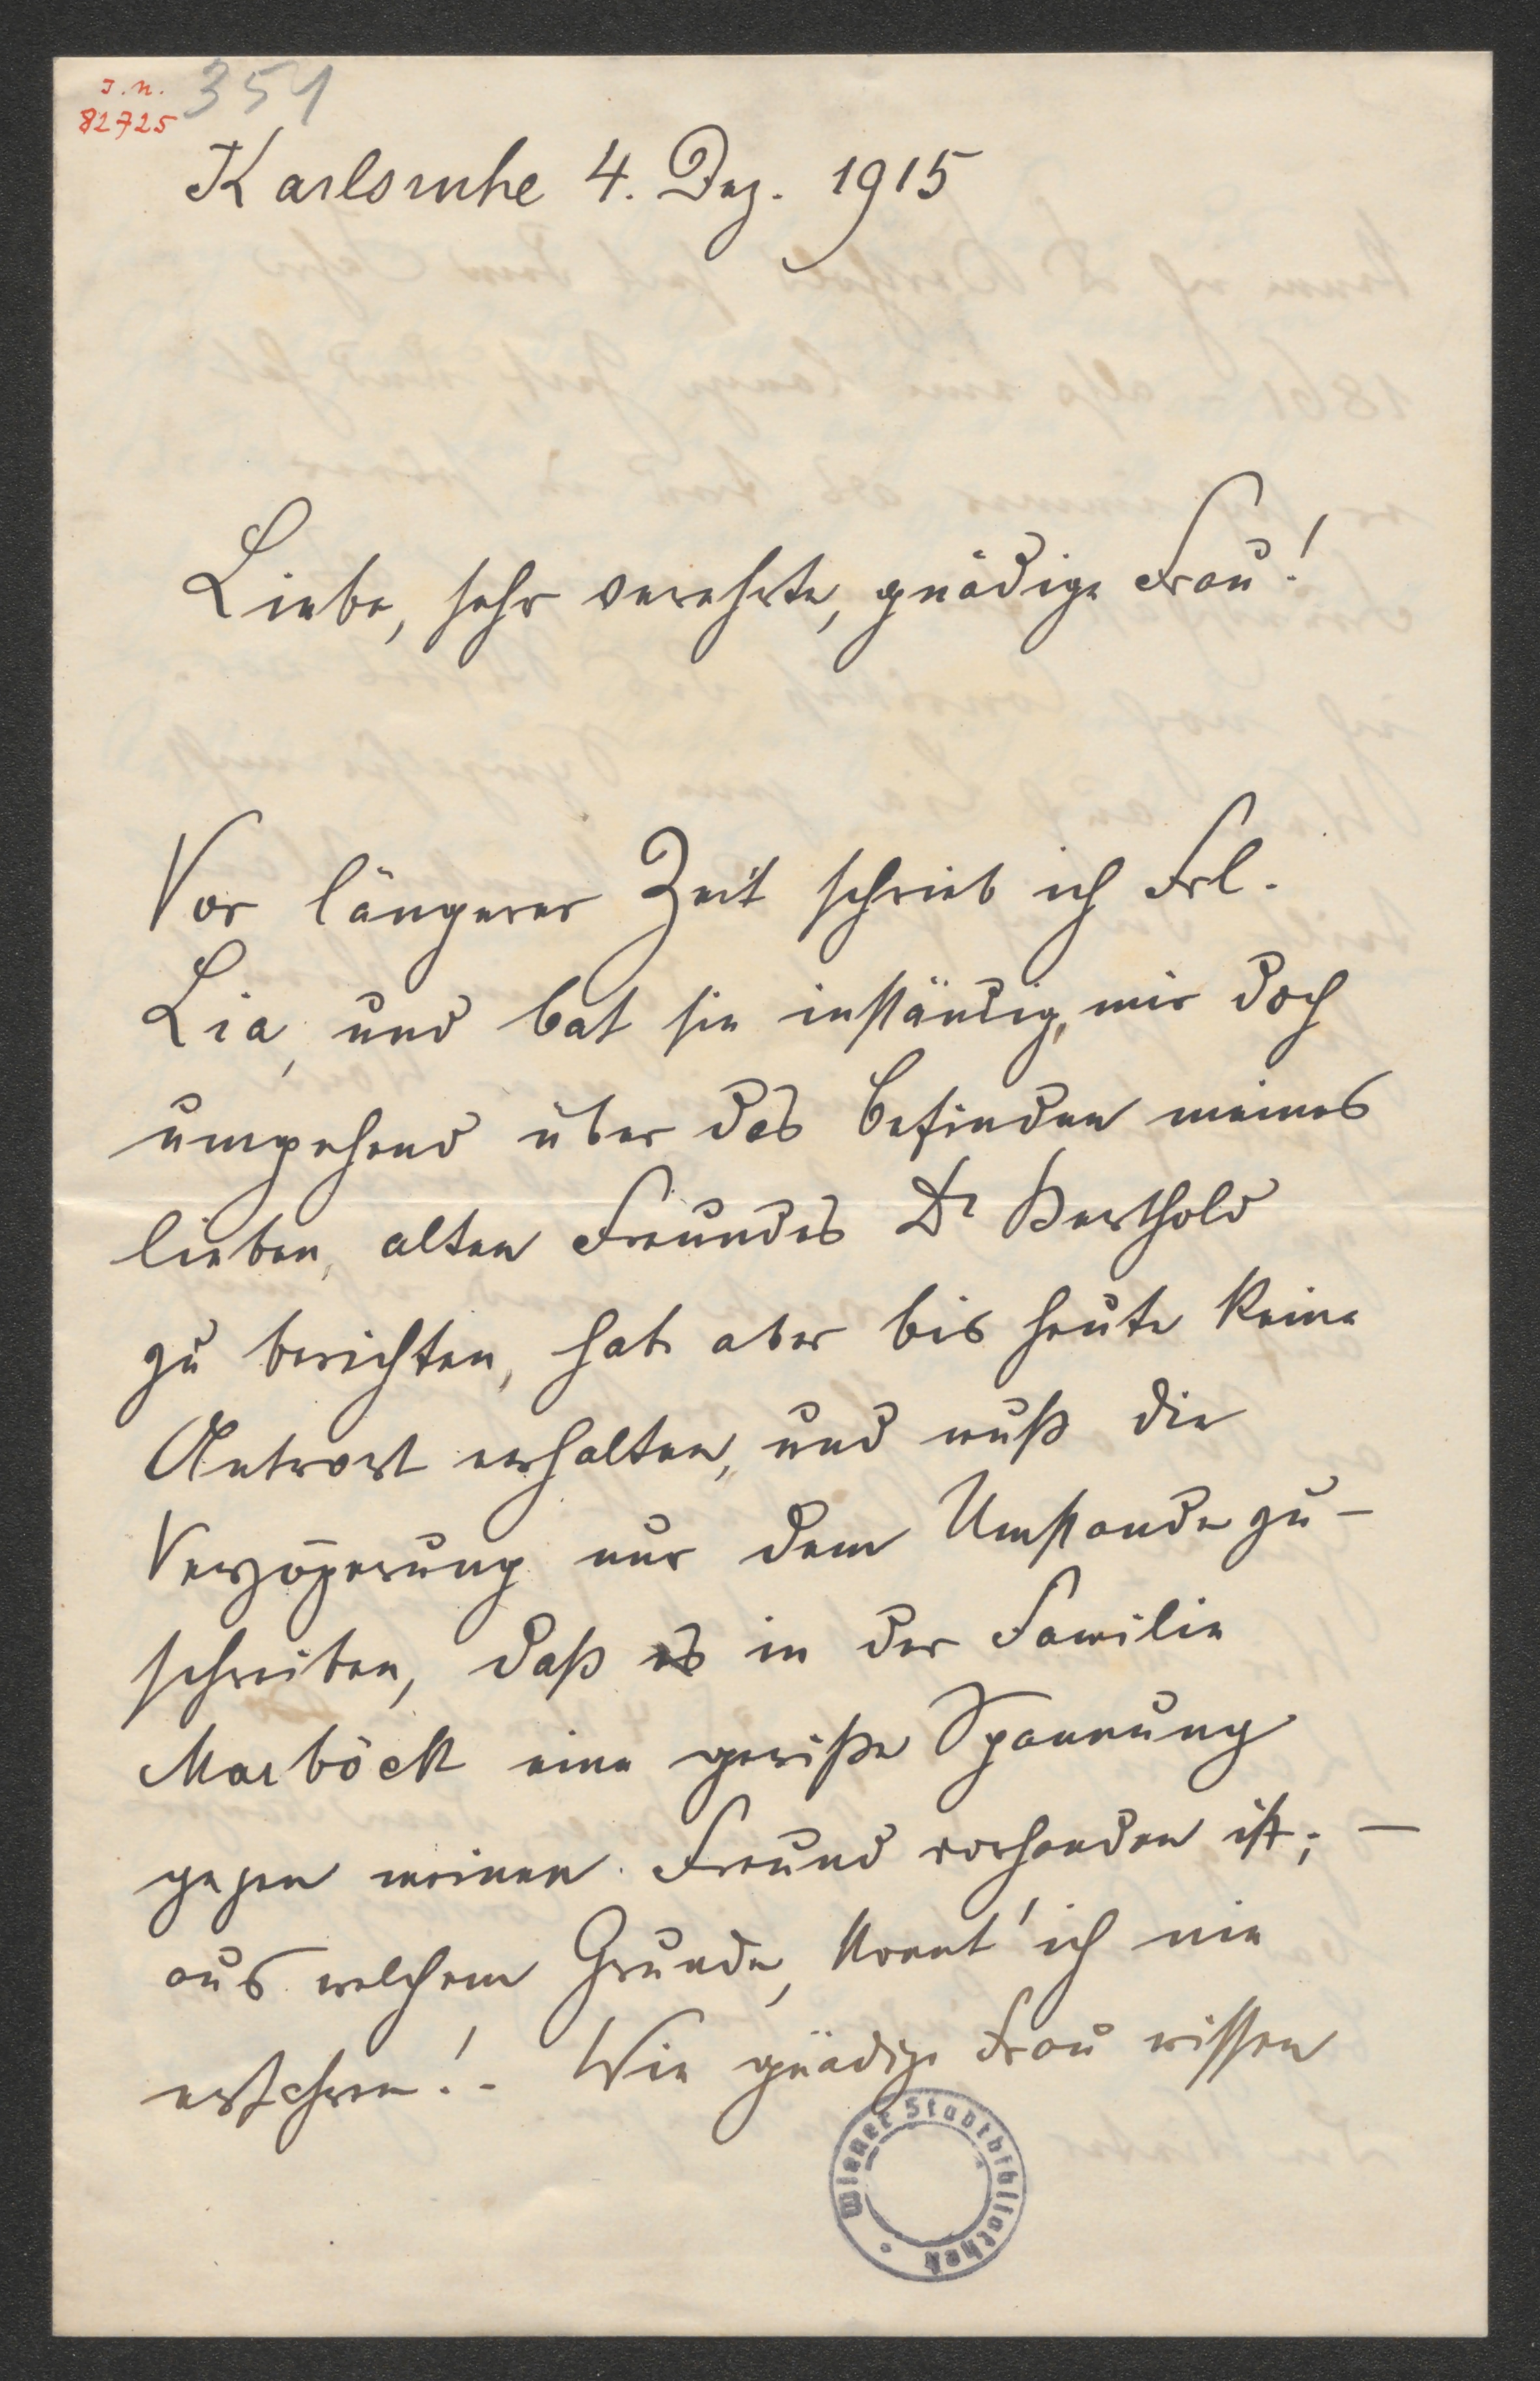 I.N.
82725
351
Karlsruhe 4. Dez. 1915
Liebe, sehr verehrte, gnädige Frau!
Vor längerer Zeit schrieb ich Frl.
Lia, und bat sie inständig, mir doch
umgehend über das Befinden meines
lieben, alten Freundes Dr Berthold
zu berichten, hab aber bis heute keine
Antwort erhalten, und muß die
Verzögerung nur dem Umstande zu-
schreiben, daß es in der Familie
Marböck eine gewiße Spannung
gegen meinen Freund vorhanden ist; —
aus welchem Grunde, konnt' ich nie
erfahren!. Wie gnädige Frau wissen
Wiener Stadtbibliothek